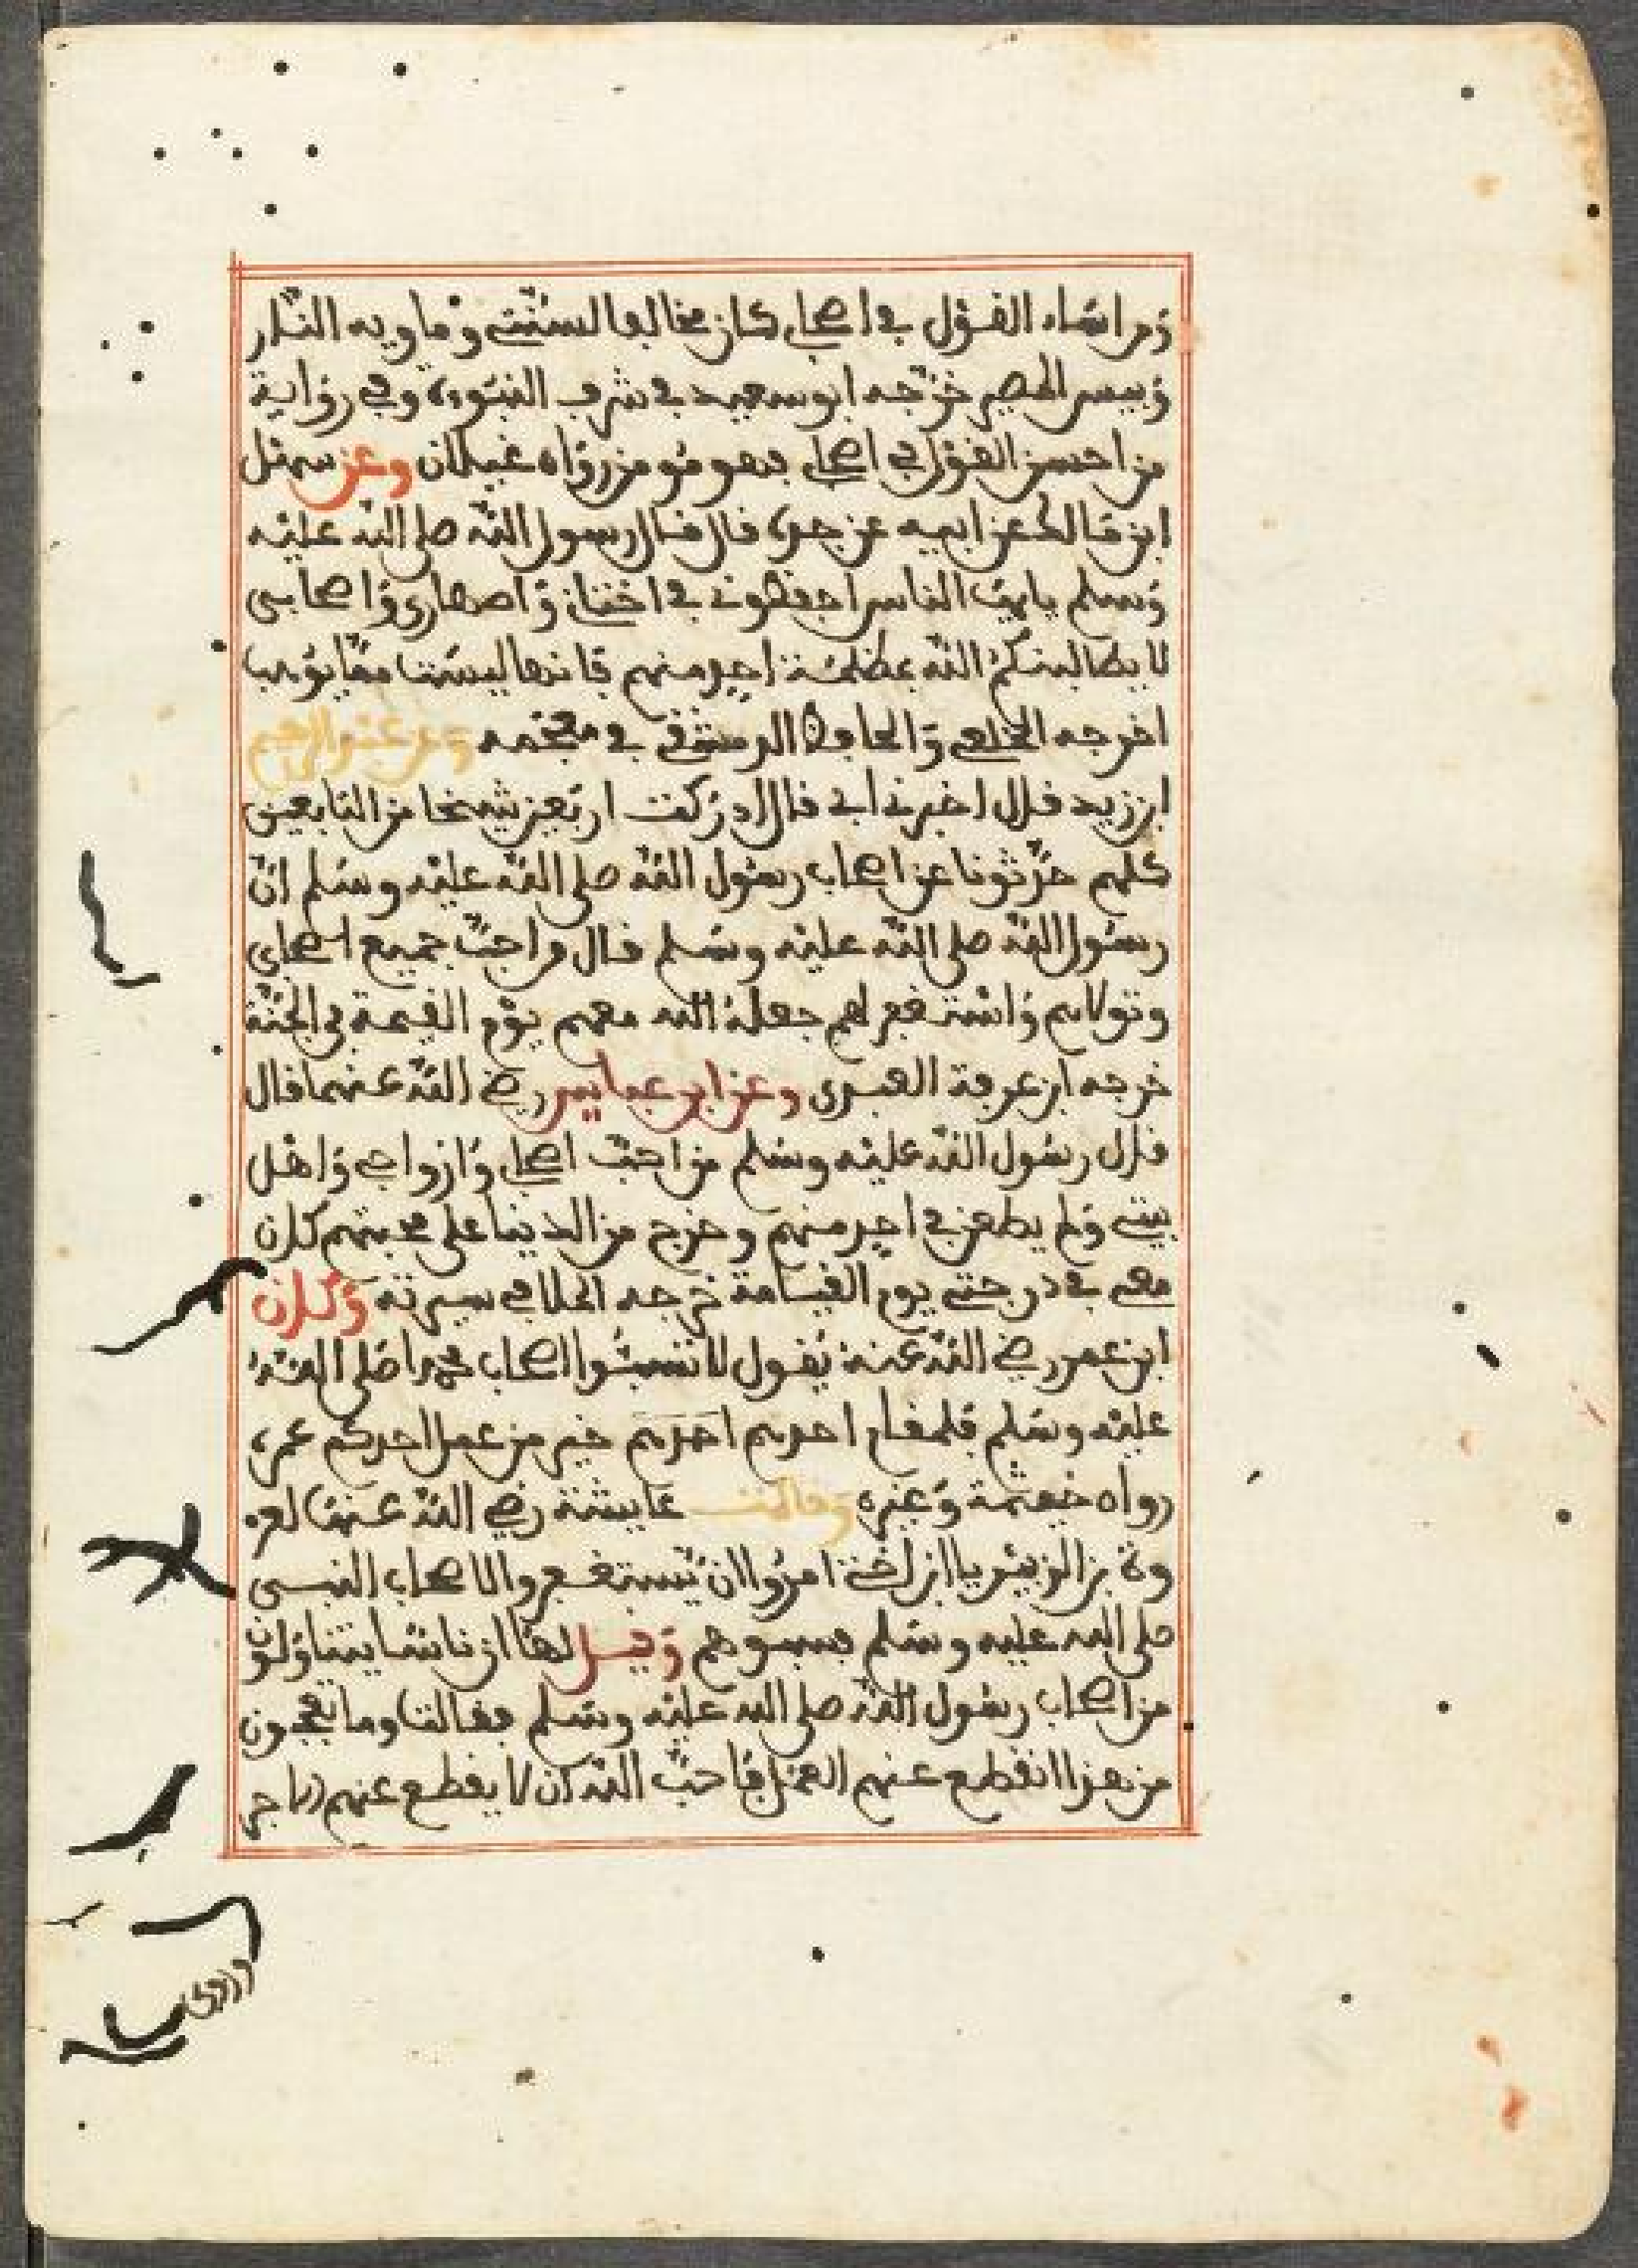 ومن اساء القول في اصحابي كان مخالفا لسنتي وماويه النار
وبيس المصير خرجه ابو سعيد في شرف النبوة وفي رواية
من احسن القول في اصحابي فهو مومن رواه غيلان وعن سهل
ابن مالك عن ابيه عن جده قال قال رسول الله صلى الله عليه
وسلم يا ايها الناس احفظوني في اختاني واصهاري واصحابي
لا يطالبنكم الله بمظلمة احد منهم فانها ليست مما يوهب
اخرجه الخلعي والحافظ الدمشقي في معجمه وعن عبد الرحيم
ابن زيد قال اخبرني ابي قال ادركت اربعين شيخا من التابعين
كلهم حدثونا عن اصحاب رسول الله صلى الله عليه وسلم ان
رسول الله صلى الله عليه وسلم قال من احب جميع اصحابي
وتولاهم واستغفر لهم جعله الله معهم يوم القيمة في الجنة
خرجه ابن عرفة العبدي وعن ابن عباس رضي الله عنهما قال
قال رسول الله عليه وسلم من احب اصحابي وازواجي واهل
بيتي ولم يطعن في احد منهم وخرج من الدنيا على محبتهم كان
معي في درجتي يوم القيامة خرجه الملا في سيرته وكان
ابن عمر رضي الله عنه يقول لا تسبوا اصحاب محمد صلى الله
عليه وسلم فلمقام احدهم احدهم خير من عمل احدكم عمره
رواه خيثمة وغيره وقالت عايشة رضي الله عنها لعر
وة بن الزبير يا ابن اختي امروا ان يستغفروا لاصحاب النبي
صلى الله عليه وسلم فسبوهم وقيل لها ان ناسا يتناولون
من اصحاب رسول الله صلى الله عليه وسلم فقالت وما تعجبون
من هذا انقطع عنهم العمل فاحب الله ان لا يقطع عنهم الاجر